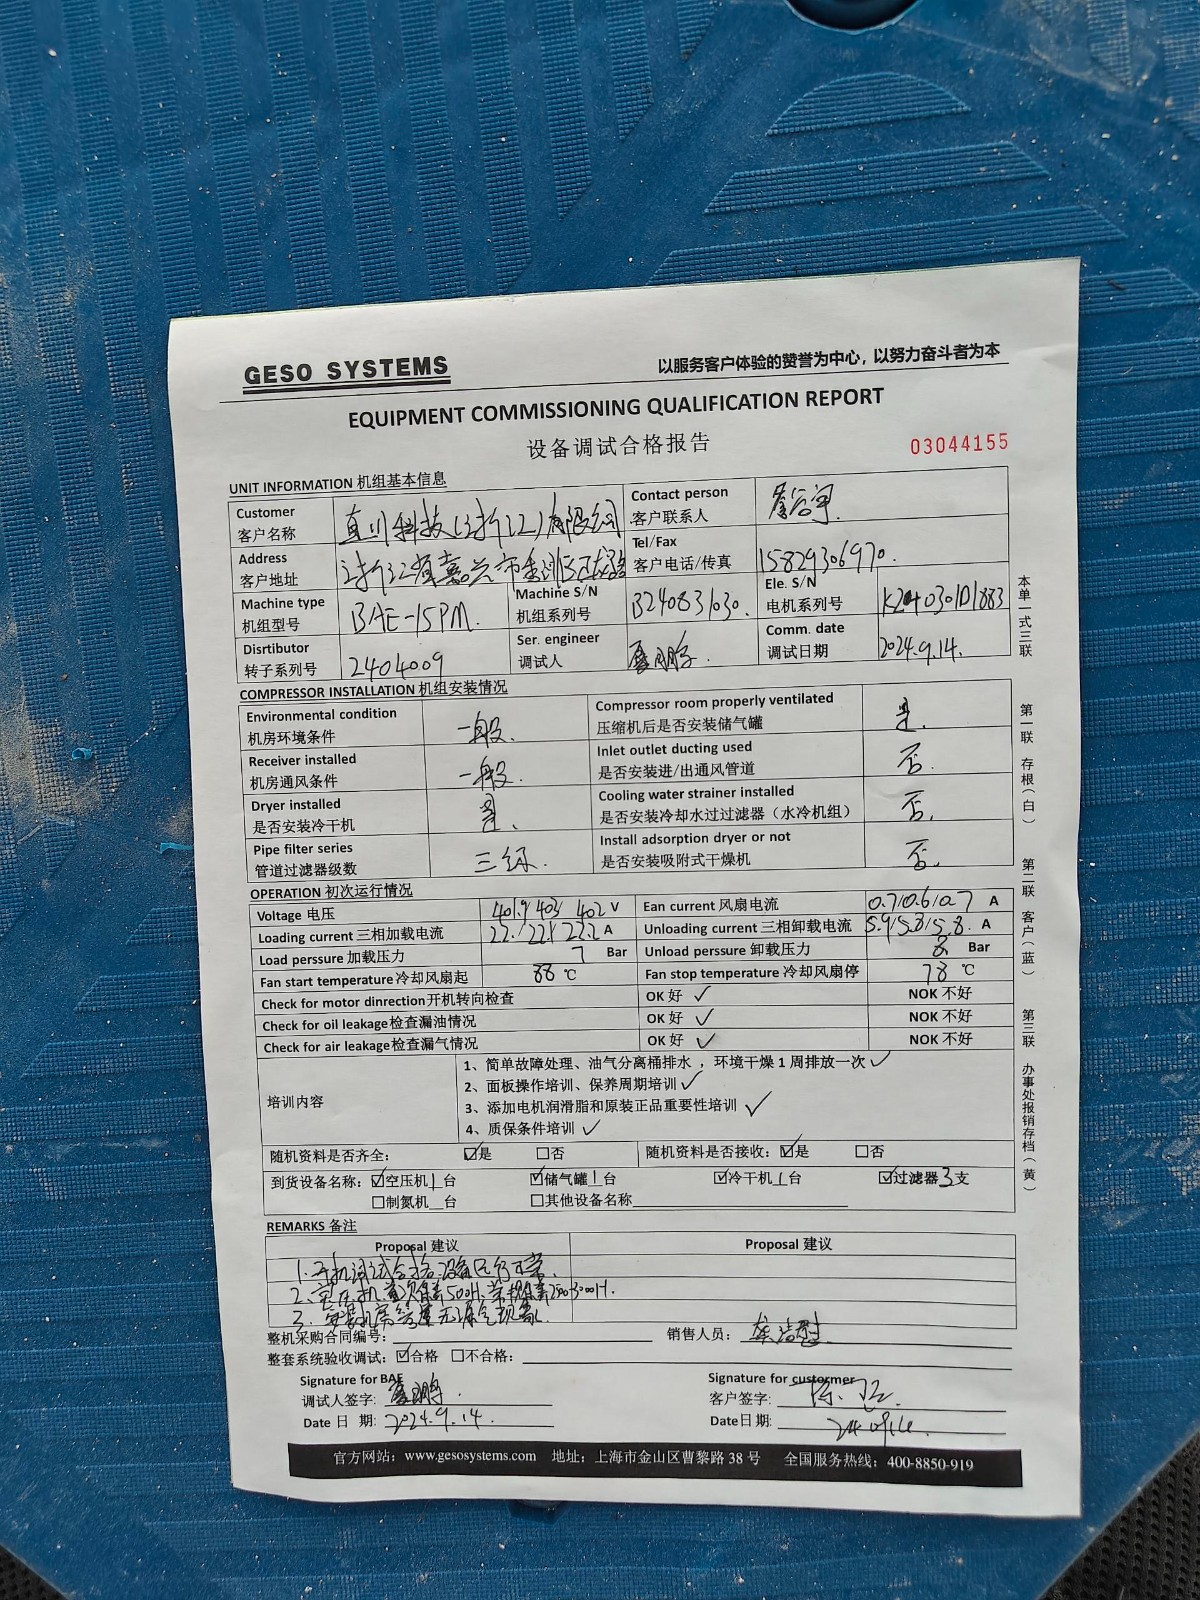 GESO SYSTEMS 以服务客户体验的赞誉为中心，以努力奋斗者为本
EQUIPMENT COMMISSIONING QUALIFICATION REPORT
设备调试合格报告
03044155
UNIT INFORMATION 机组基本信息
Customer 客户名称 直川科技(浙江)有限公司 Contact person 客户联系人
Address 客户地址 浙江省嘉兴市秀洲区 Tel/Fax 客户电话/传真 15829306970.
Machine type 机组型号 BAE-15PM. Machine S/N 机组系列号 B240831030. Ele. S/N 电机系列号 K240301D1883
Disrtibutor 转子系列号 2404009 Ser. engineer 调试人 Comm. date 调试日期 2024.9.14.
COMPRESSOR INSTALLATION 机组安装情况
Environmental condition 机房环境条件 一般. Compressor room properly ventilated 压缩机后是否安装储气罐 是.
Receiver installed 机房通风条件 一般. Inlet outlet ducting used 是否安装进/出通风管道 否.
Dryer installed 是否安装冷干机 是. Cooling water strainer installed 是否安装冷却水过过滤器（水冷机组） 否.
Pipe filter series 管道过滤器级数 三级. Install adsorption dryer or not 是否安装吸附式干燥机 否.
OPERATION 初次运行情况
Voltage 电压 401.9/403/402 V Ean current 风扇电流 0.7/0.6/0.7 A
Loading current 三相加载电流 22.1/22.1/22.2 A Unloading current 三相卸载电流 5.9/5.8/5.8. A
Load perssure 加载压力 7 Bar Unload perssure 卸载压力 8 Bar
Fan start temperature 冷却风扇起 88 ℃ Fan stop temperature 冷却风扇停 78 ℃
Check for motor dinrection 开机转向检查 OK 好 ✓ NOK 不好
Check for oil leakage 检查漏油情况 OK 好 ✓ NOK 不好
Check for air leakage 检查漏气情况 OK 好 ✓ NOK 不好
培训内容
1、简单故障处理、油气分离桶排水，环境干燥 1 周排放一次 ✓
2、面板操作培训、保养周期培训 ✓
3、添加电机润滑脂和原装正品重要性培训 ✓
4、质保条件培训 ✓
随机资料是否齐全： ☑是 □否 随机资料是否接收：☑是 □否
到货设备名称：☑空压机1台 ☑储气罐1台 ☑冷干机1台 ☑过滤器3支
□制氮机__台 □其他设备名称
REMARKS 备注
Proposal 建议 Proposal 建议
1.开机调试合格.设备运行正常.
2.空压机首次保养500H.常规保养2500-3000H.
3.
整机采购合同编号： 销售人员：
整套系统验收调试：☑合格 □不合格：
Signature for BAE Signature for custormer
调试人签字: 客户签字:
Date 日 期: 2024.9.14. Date日期: 24.09.14.
官方网站：www.gesosystems.com 地址：上海市金山区曹黎路 38 号 全国服务热线：400-8850-919
本单一式三联 第一联 存根（白） 第二联 客户（蓝） 第三联 办事处报销存档（黄）